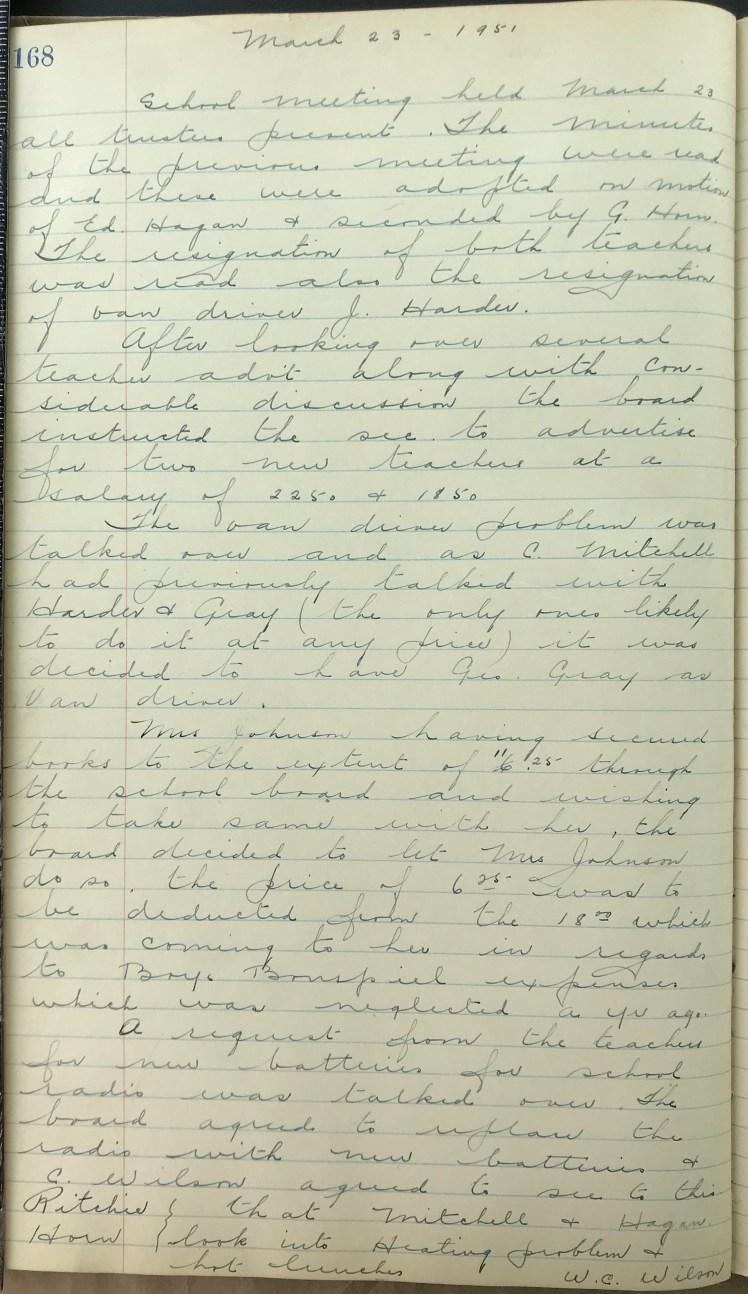 March 23 - 1951
168
School meeting held March 23
all trustees present. The minutes
of the previous meeting were read
and these were adopted on motion
of Ed. Hagan & seconded by G. Horn.
The resignation of both teachers
was read also the resignation
of van driver J. Harder.
After looking over several
teacher adv't along with con-
siderable discussion the board
instructed the sec. to advertise
for two new teachers at a
salary of 2250 & 1850
The van driver problem was
talked over and as C. Mitchell
had previously talked with
Harder & Gray (the only ones likely
to do it at any price) it was
decided to have Geo. Gray as
van driver.
Mrs Johnson having secured
books to the extent of 6.25 through
the school board and wishing
to take same with her, the
board decided to let Mrs Johnson
do so. the price of 6 25 was to
be deducted from the 18 00 which
was coming to her in regards
to Boys Bonspiel expenses
which was neglected a yr ago.
A request from the teachers
for new batteries for school
radio was talked over. The
board agreed to replace the
radio with new batteries &
C. Wilson agreed to see to this
Ritchie } that Mitchell & Hagan
Horn } look into Heating problem &
hot lunches W.C. Wilson